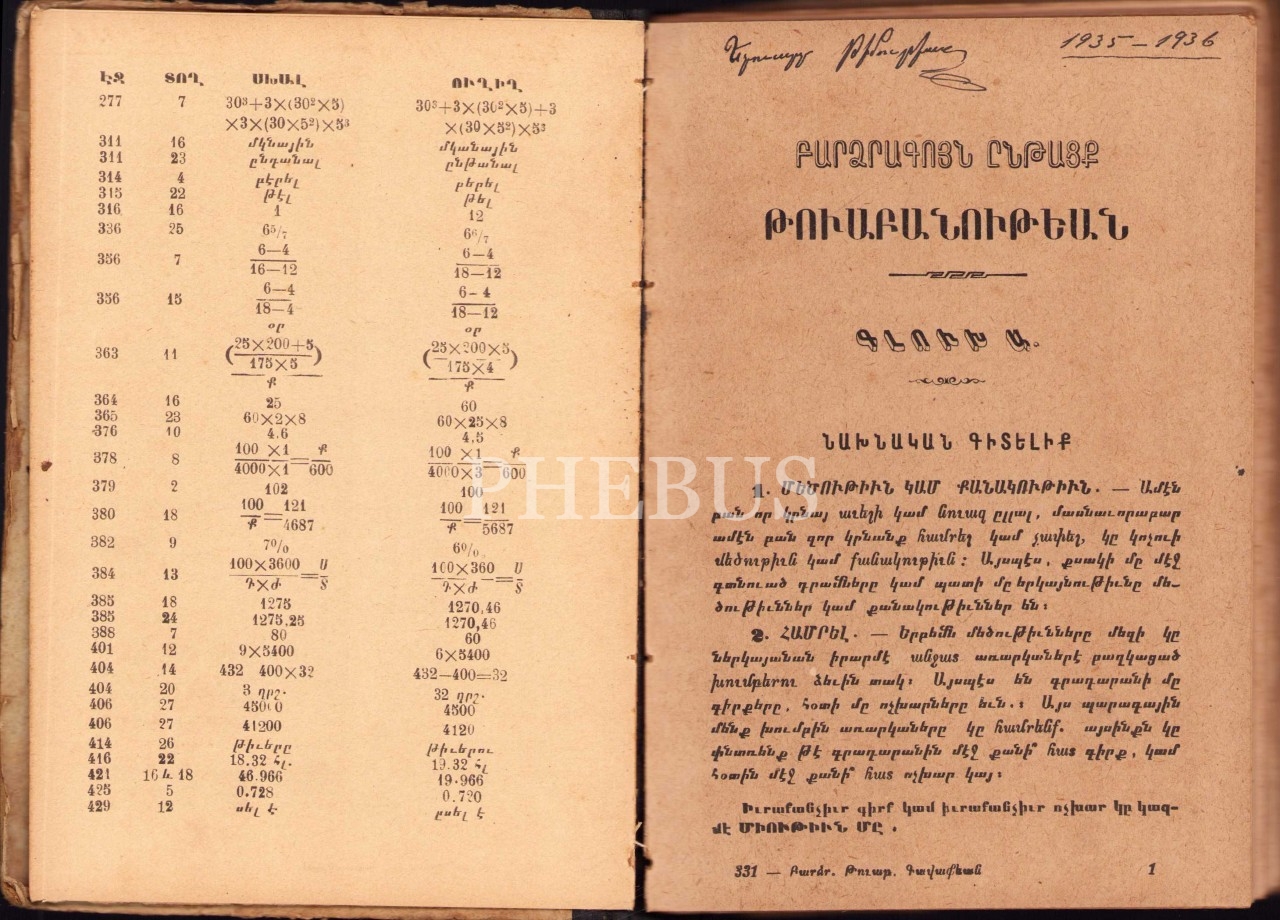 ԷՋ ՏՈՂ ՍԽԱԼ ՈՒՂԻՂ
277 7 30³+3×(30²×5) 30³+3×(30²×5)+3
×3×(30×5²)×5³ ×(30×5²)×5³
311 16 մկնային մկանային
311 23 ընդանալ ընթանալ
314 4 բէրել բերել
315 22 թէլ թել
316 16 1 12
336 25 6⁵/₇ 6⁶/₇
356 7 6—4 6—4
16—12 18—12
356 15 6—4 6-4
18—4 18—12
օր օր
363 11 (25×200+5 (25×200×5
175×5) 175×4)
Ք Ք
364 16 25 60
365 23 60×2×8 60×25×8
376 10 4.6 4,5
378 8 100 ×1 = Ք 100 ×1 = Ք
4000×1 600 4000×3 600
379 2 102 100
380 18 100 = 121 100 = 121
Ք 4687 Ք 5687
382 9 7% 6%
384 13 100×3600 = Ս 100×360 = Ս
Դ×Ժ Տ Դ×Ժ Տ
385 18 1275 1270,46
385 24 1275,25 1270,46
388 7 80 60
401 12 9×5400 6×5400
404 14 432 400×32 432—400=32
404 20 3 ղրշ. 32 ղրշ.
406 27 45000 4500
406 27 41200 4120
414 26 թիւերը թիւերու
416 22 18.32 հլ. 19.32 հլ
421 16 և 18 46.966 19.966
425 5 0.728 0.720
429 12 սել է ըսել է
1935 — 1936
ԲԱՐՁՐԱԳՈՅՆ ԸՆԹԱՑՔ
ԹՈՒԱԲԱՆՈՒԹԵԱՆ
ԳԼՈՒԽ Ա.
ՆԱԽՆԱԿԱՆ ԳԻՏԵԼԻՔ
1. ՄԵԾՈՒԹԻՒՆ ԿԱՄ ՔԱՆԱԿՈՒԹԻՒՆ. — Ամէն
բան որ կրնայ աւելի կամ նուազ ըլլալ, մասնաւորաբար
ամէն բան զոր կրնանք համրել կամ չափել, կը կոչուի
մեծութիւն կամ քանակութիւն։ Այսպէս, քսակի մը մէջ
գտնուած դրամները կամ պատի մը երկայնութիւնը մե–
ծութիւններ կամ քանակութիւններ են։
2. ՀԱՄՐԵԼ. — Երբեմն մեծութիւնները մեզի կը
ներկայանան իրարմէ անջատ առարկաներէ բաղկացած
խումբերու ձեւին տակ։ Այսպէս են գրադարանի մը
գիրքերը, հօտի մը ոչխարները եւն.։ Այս պարագային
մենք խումբին առարկաները կը համրենք. այսինքն կը
փնտռենք թէ գրադարանին մէջ քանի՞ հատ գիրք, կամ
հօտին մէջ քանի՞ հատ ոչխար կայ։
Իւրաքանչիւր գիրք կամ իւրաքանչիւր ոչխար կը կազ–
մէ ՄԻՈՒԹԻՒՆ ՄԸ .
331 — Բարձր. Թուաբ. Գավաֆեան 1
PHEBUS